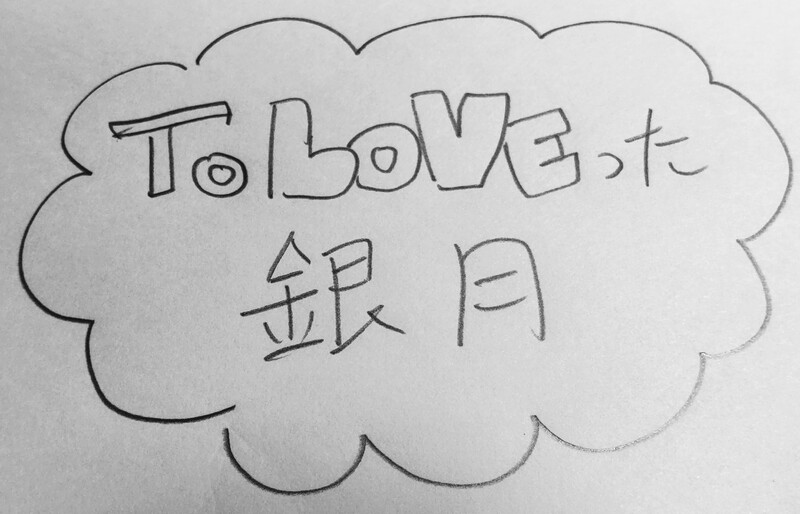 To LOVEった
銀月